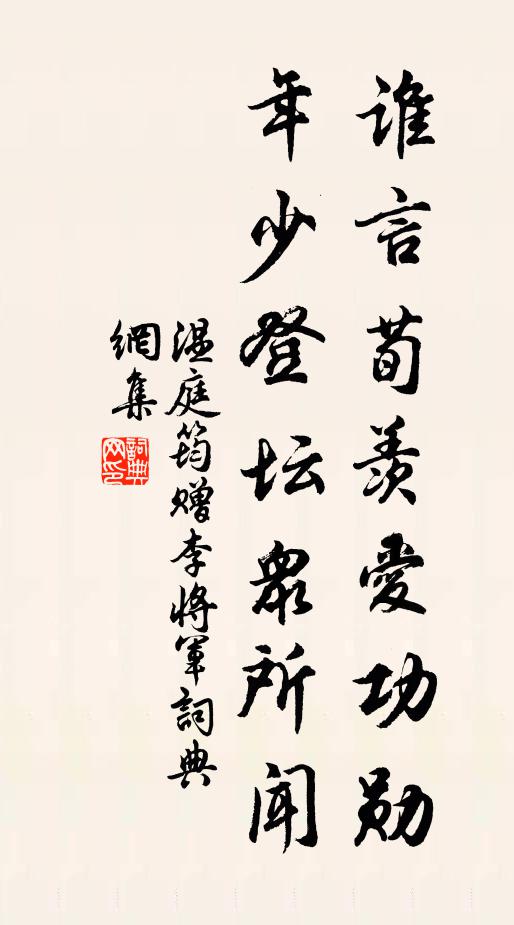 谁言荀羡爱功勋
年少登坛众所闻
温庭筠赠李将军词典
网集
词典网印